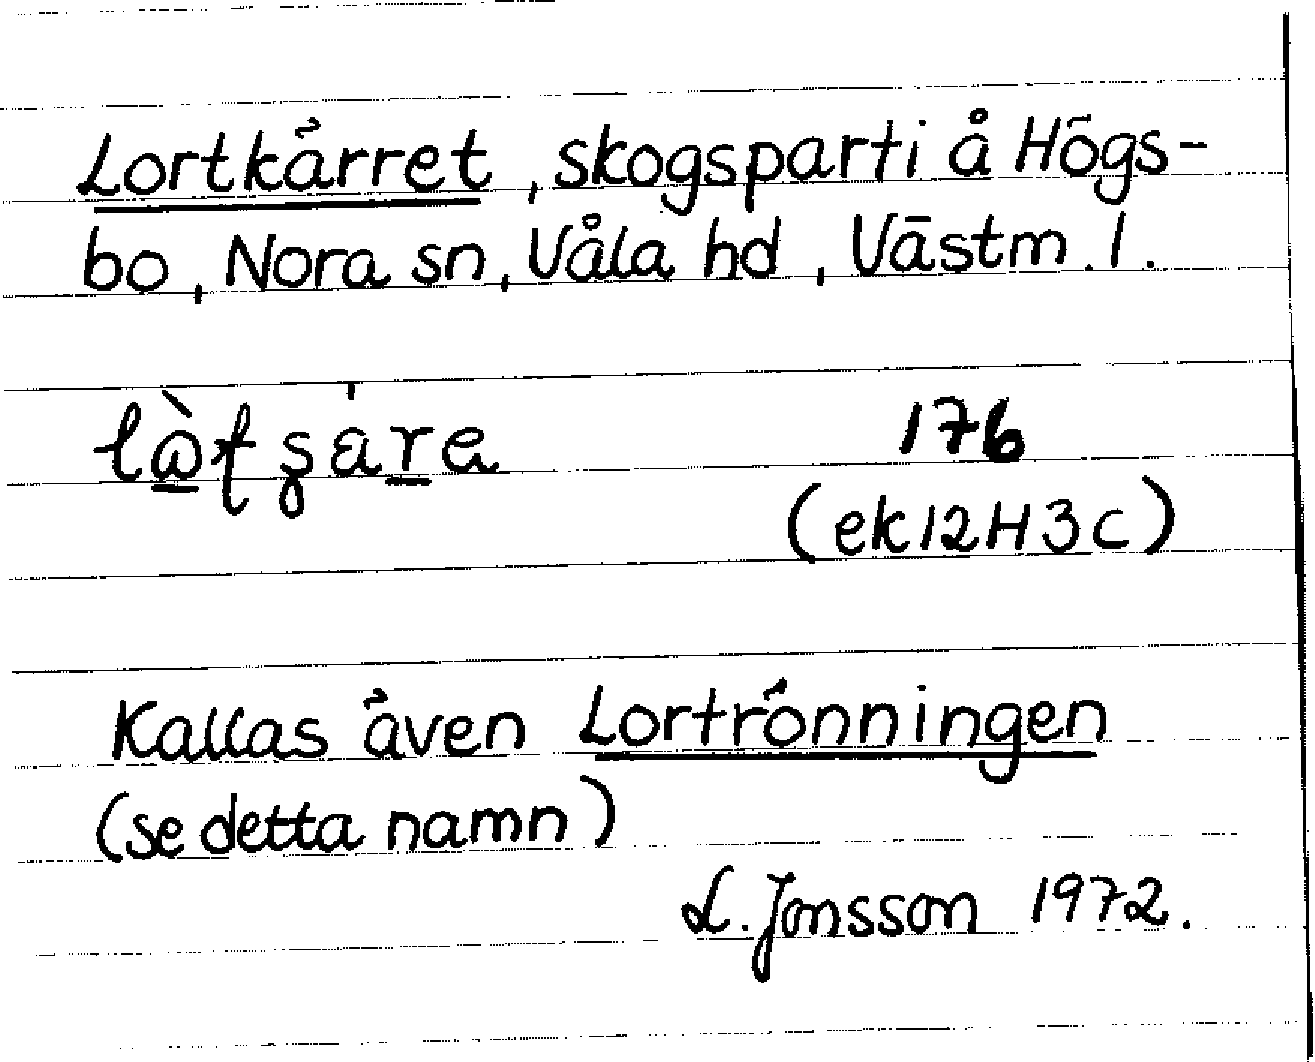 Lortkärret, skogsparti å Högs-
bo, Nora sn, Våla hd, Västm. l.
176
(ek 12H3c)
Kallas även Lortrönningen
(se detta namn)
L. Jonsson 1972.